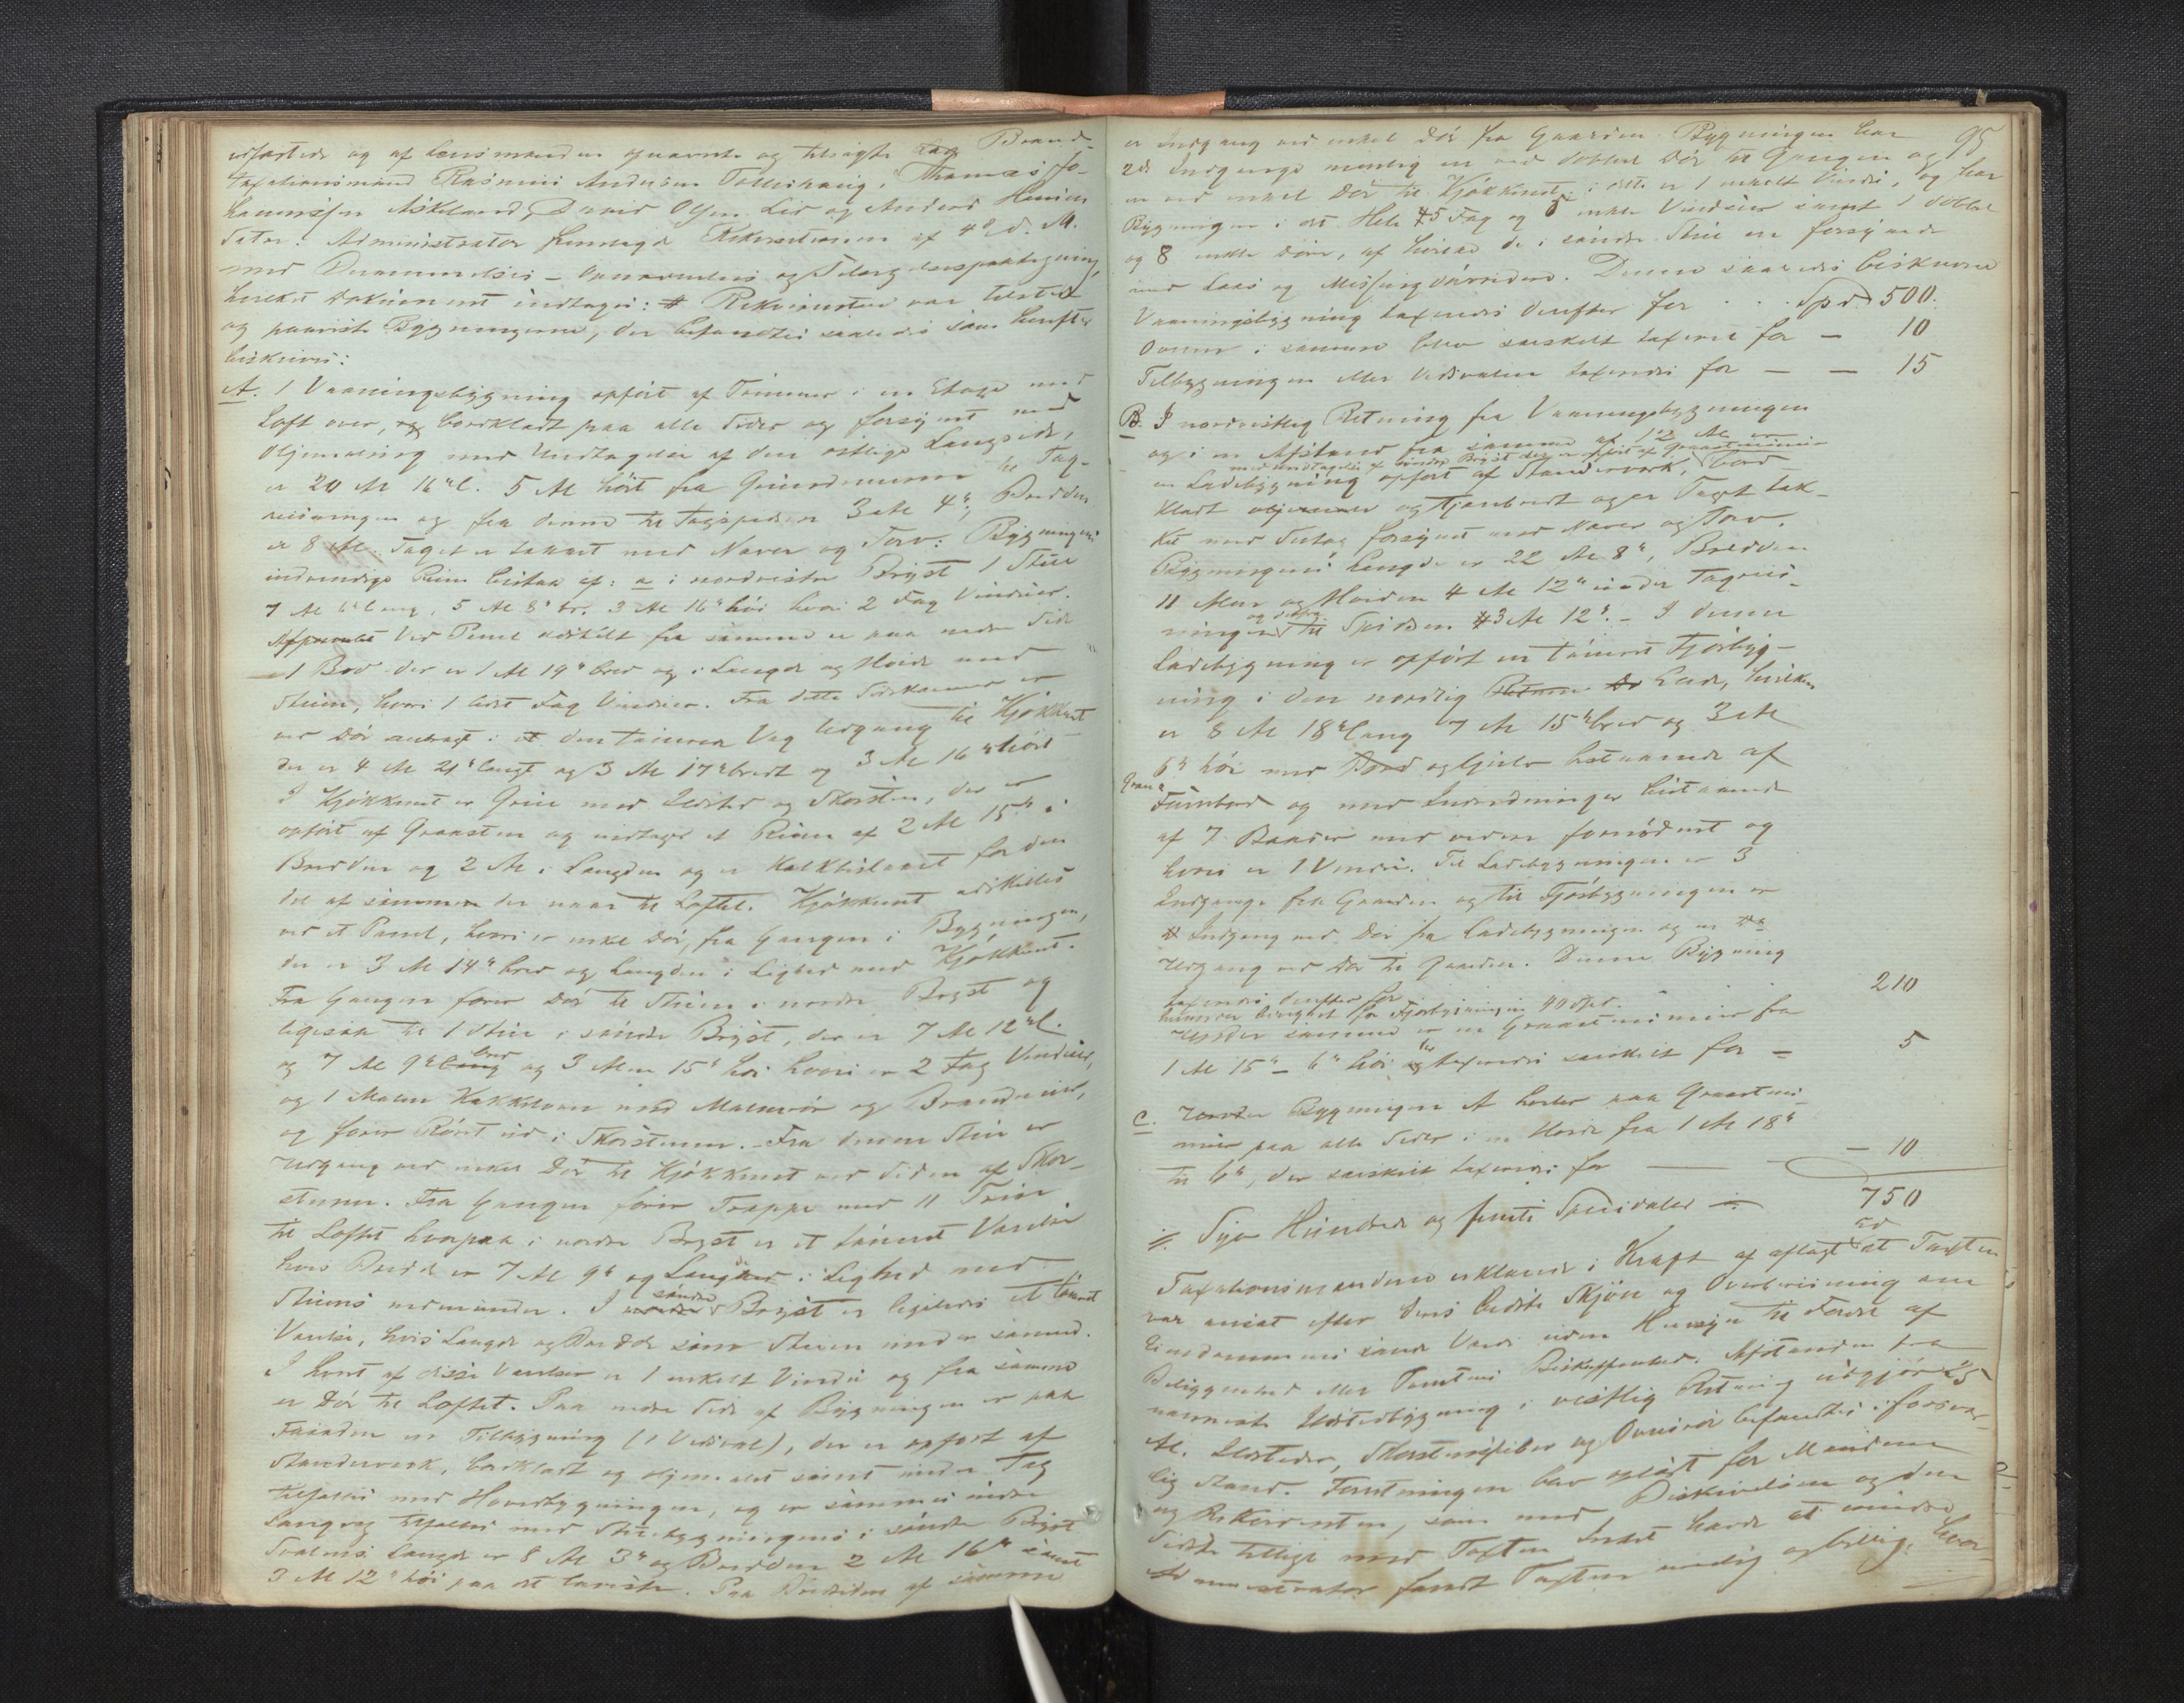 edfæstede og af Lensmanden opnævnte og tilsagte Brand-
taxationsmænd Rasmus Andersen Tolleshaug, Thomas Jo-
hannessen Askeland, David Olsen Lid og Anders Hansen
Administrator fremlagde Rekvisitionen af 4de d. M.
med Berammelses- Opnævnelses og Tilsigelsespaategning,
hvilket Dokument indtages: # Rekvirenten var tilstede
og paaviste Bygningerne, der befandtes saaledes som herefter
beskrives:
A. 1 Vaaningsbygning opført af Tømmer i en Etage med
Loft over, og bordklædt paa alle Sider og forsynet med
Oljemaling med Undtagelse af den østlige Langside,
er 20 Al 16" l. 5 Al høit fra Grundmuren til Tag-
reisningen og fra denne til Tagspidsen 3 Al 4", Bredden
er 8 Al. Taget er tækket med Næver og Torv: Bygningens
indvendige Rum bestaa af: a i nordvestre Bryst 1 Stue
7 Al 6" lang, 5 Al 8" br. 3 Al 16" høi hvori 2 Fag Vinduer.
Ved Panel adskilt fra samme er paa nedre Side
1 Bod der er 1 Al 19" bred og i Længde og Høide med
Stuen, hvori 1 lidet Fag Vinduer. Fra dette Sidekammer er
ved Dør i den tømrede Væg Udgang til Kjøkkenet
der er 4 Al 21" langt og 3 Al 17" bredt og 3 Al 16" høit
I Kjøkkenet er Grue med Ildsted og Skorsten, der er
opført af Graasten og indtager et Rum af 2 Al 15" i
Bredden og 2 Al i Længden og er Kalkbeslaaet for den
del af samme der naar til Loftet. Kjøkkenet adskilles
ved et Panel, hvori er enkel Dør, fra Gangen i Bygningen,
der er 3 Al 14" bred og Længden i Lighed med Kjøkkenet.
Fra Gangen fører Dør til Stuen i nordre Bryst og
ligesaa til 1 Stue i søndre Bryst, der er 7 Al 12" l.
og 7 Al 9" lang bred og 3 Alen 15" høi hvori er 2 Fag Vinduer,
og 1 Malm Kakkelovn med Malmrør og Brandmur,
og fører Røret ud i Skorstenen. Fra denne Stue er
Udgang ved enkel Dør til Kjøkkenet ved Siden af Skor-
stenen. Fra Gangen fører Trappe med 11 Trin
til Loftet hvorpaa i nordre Bryst er et tømret Værelse
hvis Bredde er 7 Al 9" og Længden i Lighed med
Stuens nedenunder. I søndre Bryst er ligeledes et tømret
Værelse, hvis Længde og Bredde som Stuen under samme.
I hvert af disse Værelser er 1 enkelt Vindu og fra samme
er Dør til Loftet. Paa nedre Side af Bygningen er paa
Tilbygning (1 Vedsval), der er opført af
Standerverk, bordklædt og oljemalet samt under Tag
tilfælles med Hovedbygningen, og er sammes indre
Langvæg tilfælles med Stuebygningens i søndre Bryst
Svalens Længde er 8 Al 3" og Bredden 2 Al 16" samt
3 Al 12" høi paa det laveste. Paa Bredsiden af samme
95
er Indgang ved enkel Dør fra Gaarden. Bygningen har
2de Indgange nemlig en ved dobbel Dør til Gangen og
en ved enkel Dør til Kjøkkenet; i dette er 1 enkelt Vindu, og har
Bygningen i det Hele 5 Fag og 5 enkle Vinduer samt 1 dobbel
og 8 enkle Døre, af hvilke de i søndre Stue er forsynede
med Laas og Messingdørvridere. Denne saaledes beskrevne
Vaaningsbygning taxeredes derefter for . . . Spd 500.
Ovnen i samme blev særskilt taxeret for – 10
Tilbygningen eller Vedsvalen taxeredes for – – 15
B. I nordvestlig Retning fra Vaaningsbygningen
og i en Afstand fra samme af 12 Al er
med Undtagelse af søndre Bryst der er opført af Graastensmur
en Ladebygning opført af Standerverk, bord-
klædt og tjærebredt og er Taget tæk-
ket med Sutag forsynet med Næver og Torv.
Bygningens Længde er 22 Al 8", Bredden
11 Alen og Høiden 4 Al 12" under Tagreis-
og derfra
ningen til Spidsen 3 Al 12". – I denne
Ladebygning er opført en tømret Fjøsbyg-
ning i den nordlig Ende, hvilken
er 8 Al 18" lang 7 Al 15" bred og 3 Al
6" høi med og Gulv bestaaende af
Furubord og med Indredninger bestaaende
af 7 Baaser med videre fornødent og
hvori er 1 Vindu. Til Ladebygningen er 3
Indgange fra Gaarden og til Fjøsbygningen er
Indgang ved Dør fra Ladebygningen og en do
Udgang ved Dør til Gaarden. Denne Bygning
taxeredes derefter for 210
hvoraf beregnet for Fjøsbygningen 40 Spd.
Under samme er en Graastensmuur fra
1 Al 15" – 6" høi der taxeredes særskilt for – 5
C. Under Bygningen A hviler paa Graastens-
muur paa alle Sider i en Høide fra 1 Al 18"
til 6", der særskilt taxeredes for – 10
Syv Hundrede og femti Speciedaler 750
Taxationsmændene erklærede i Kraft af aflagt Ed at Taxten
var ansat efter deres bedste Skjøn og Overbevisning om
Eiendommens sande Værdi uden Hensyn til Fordel af
Beliggenhed eller Tomtens Beskaffenhed. Afstanden fra
nærmeste Ildstedbygning i vestlig Retning udgjør 25
Al. Ildsteder, Skorstenspiber og Ovnsrør befandtes i forsvar-
lig Stand. Forretningen blev oplæst for Mændene
og Rekvirenten, som mod Beskrivelsen og den
tillige med Taxten Intet havde at erindre
Administrator fandt Taxten rimelig og billig, hvor-